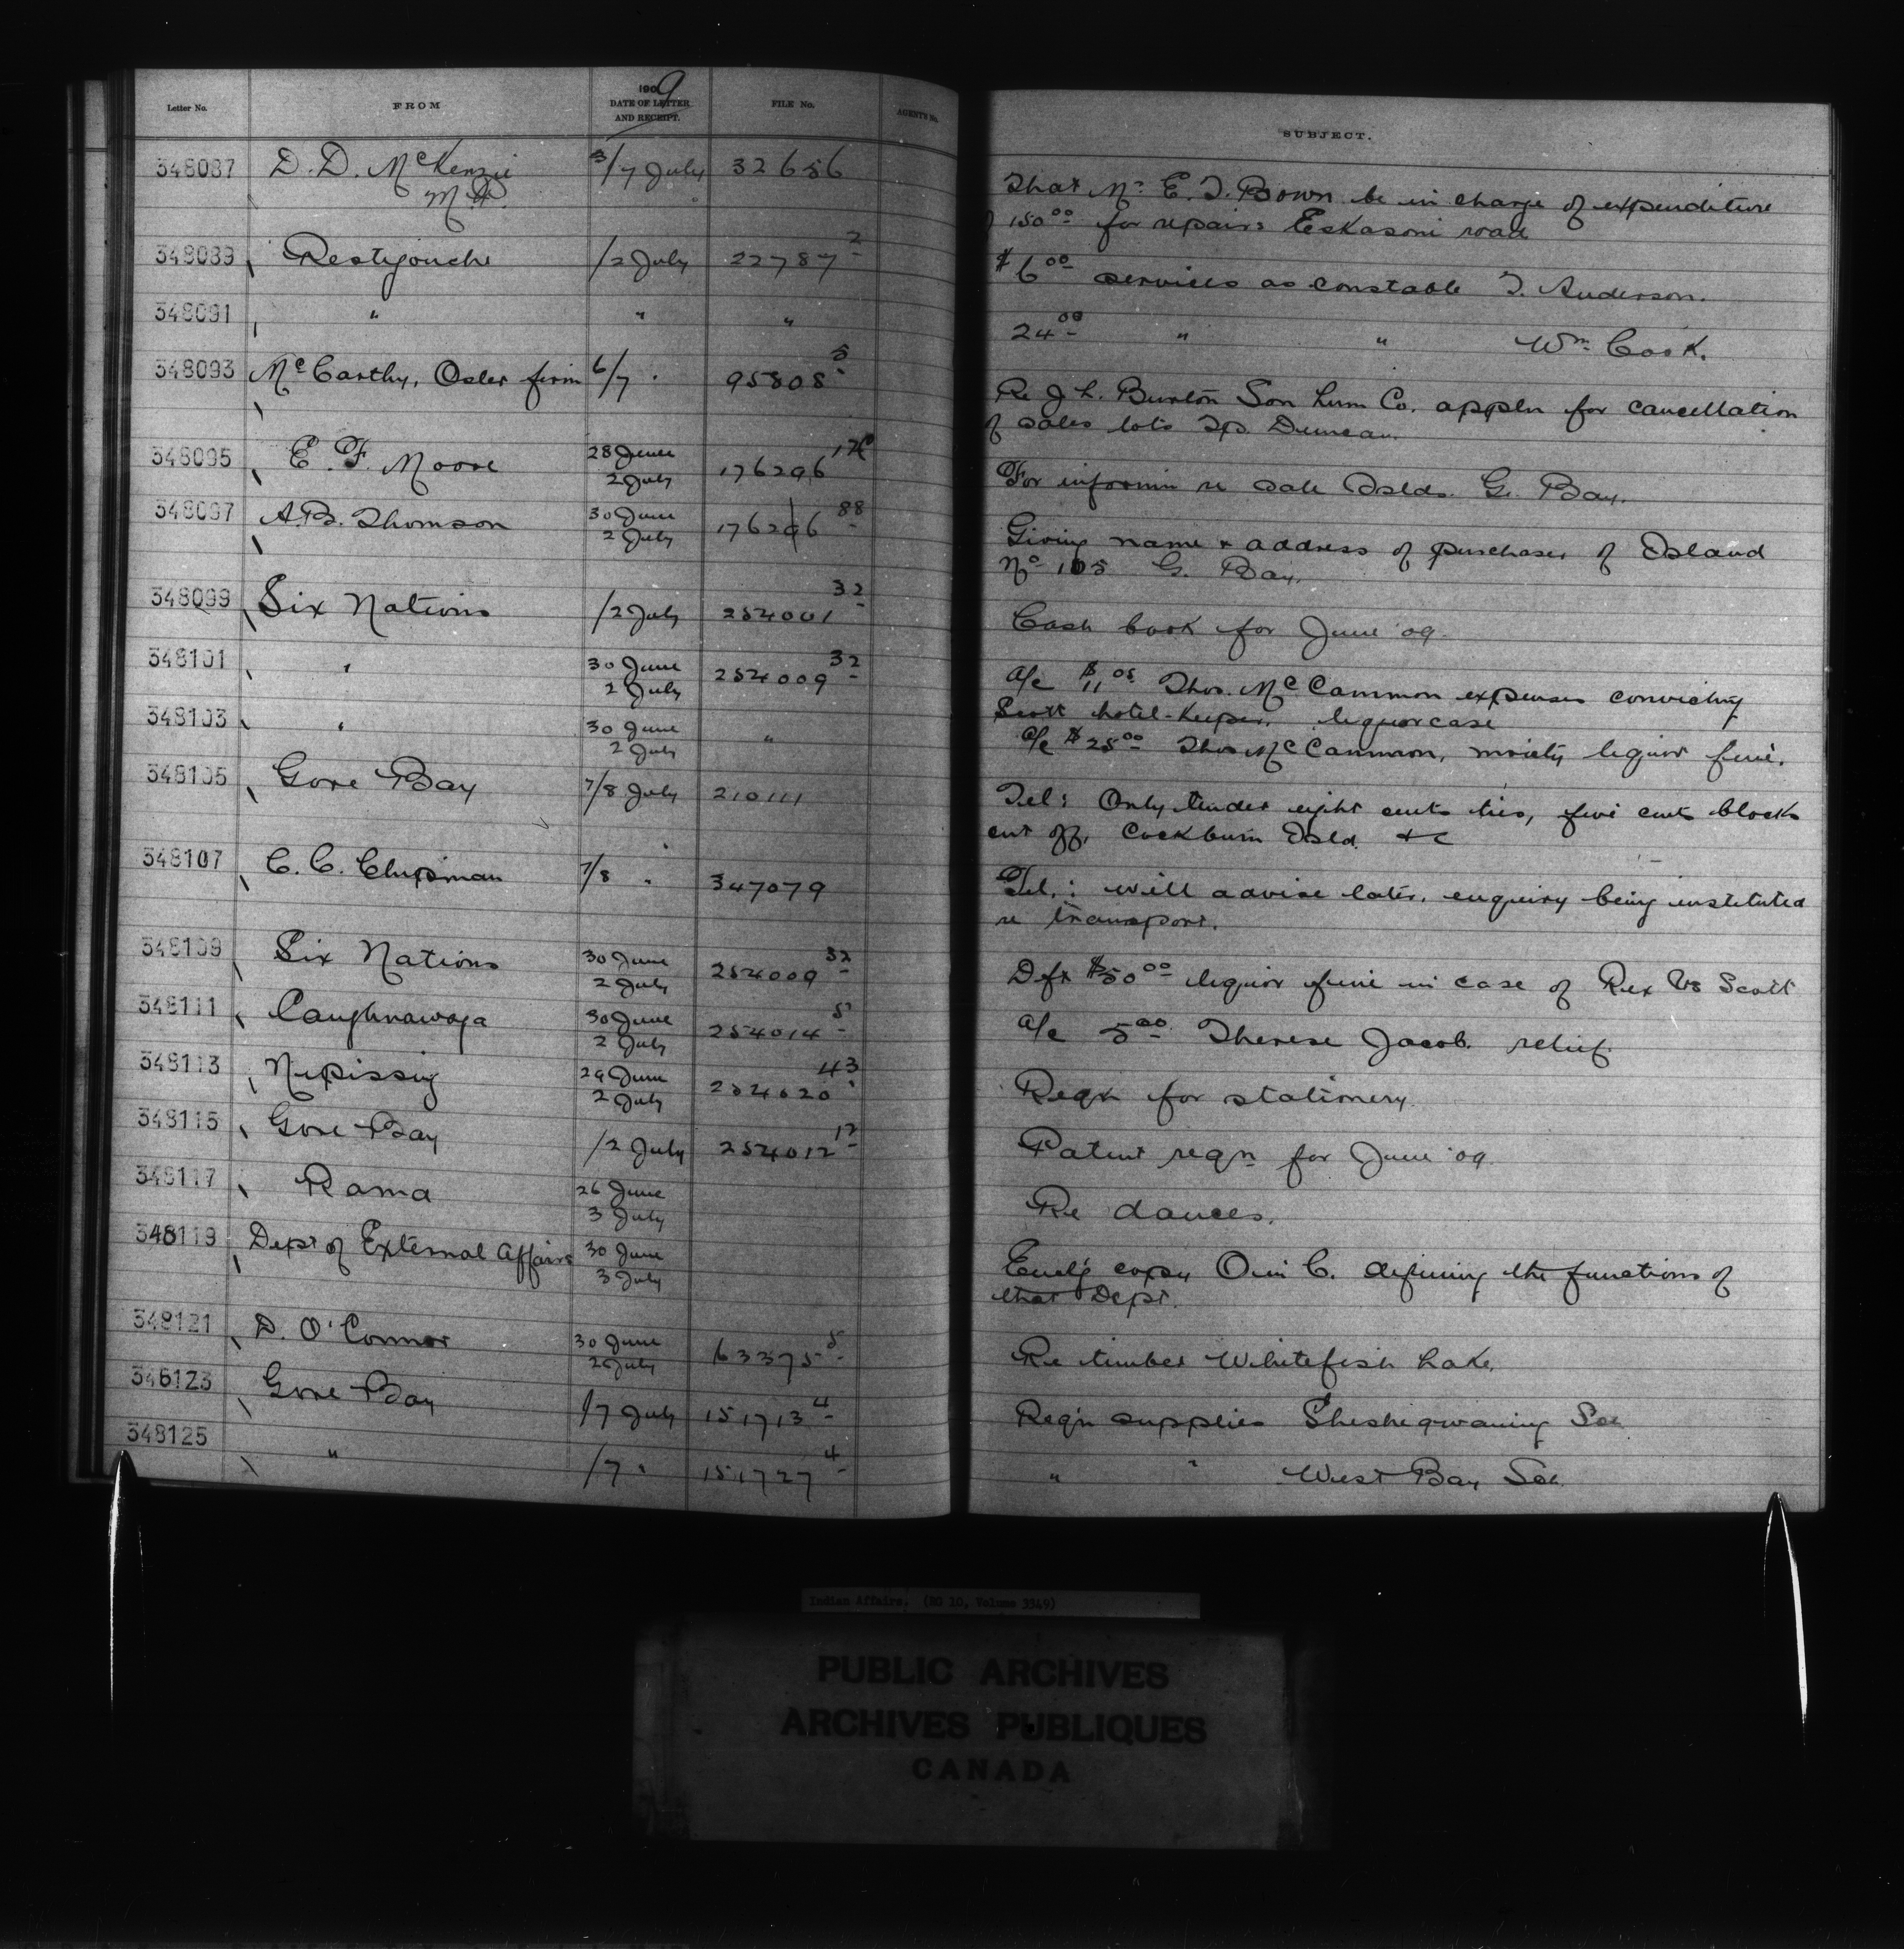 1909
Letter No. FROM DATE OF LETTER AND RECEIPT. FILE No. AGENT'S No. SUBJECT.
348087 D. D. McKenzie 3/7 July 32656 That Mr. E. T. Bown be in charge of expenditure
M.P. of 150.00 for repairs Eskasoni road
348089 Restigouche /2 July 22787 2 $6.00 services as constable T. Anderson.
348091 " " " 24.00 " " Wm. Cook.
348093 McCarthy, Osler firm 6/7 " 95808 5 Re J. L. Burton Son Lum Co. appln for cancellation
of sales lots Tp. Duncan.
348095 E. F. Moore 28 June 2 July 176296 17C For informn re sale Islds. G. Bay.
348097 A. B. Thomson 30 June 2 July 176296 88 Giving name & address of purchaser of Island
No. 105 G. Bay.
348099 Six Nations /2 July 254001 32 Cash book for June '09.
348101 " 30 June 2 July 254009 32 a/c $11.05 Thos. McCammon expenses convicting
Scott hotel-keeper. liquor case
348103 " 30 June 2 July " a/c $25.00 Thos McCammon, moiety liquor fine.
348105 Gore Bay 7/8 July 210111 Tel: Only tender eight cents ties, five cents blocks
cut off, Cockburn Isld. &c
348107 C. C. Chipman 7/8 " 347079 Tel.: will advise later, enquiry being instituted
re transport.
348109 Six Nations 30 June 2 July 254009 32 Dft $50.00 liquor fine in case of Rex Vs Scott
348111 Caughnawaga 30 June 2 July 254014 5 a/c 5.00 Therese Jacob. relief.
348113 Nipissing 29 June 2 July 254020 43 Reqn for stationery.
348115 Gore Bay /2 July 254012 12 Patent reqn for June '09.
348117 Rama 26 June 3 July Re dances.
348119 Dept of External Affairs 30 June 3 July Encl'g copy O in C. defining the functions of
that Dept.
348121 D. O'Connor 30 June 2 July 63375 5 Re timber Whitefish Lake.
348123 Gore Bay /7 July 151713 4 Req'n supplies Sheshegwaning Scl.
348125 " /7 " 151727 4 " " West Bay Scl.
Indian Affairs. (RG 10, Volume 3349)
PUBLIC ARCHIVES
ARCHIVES PUBLIQUES
CANADA